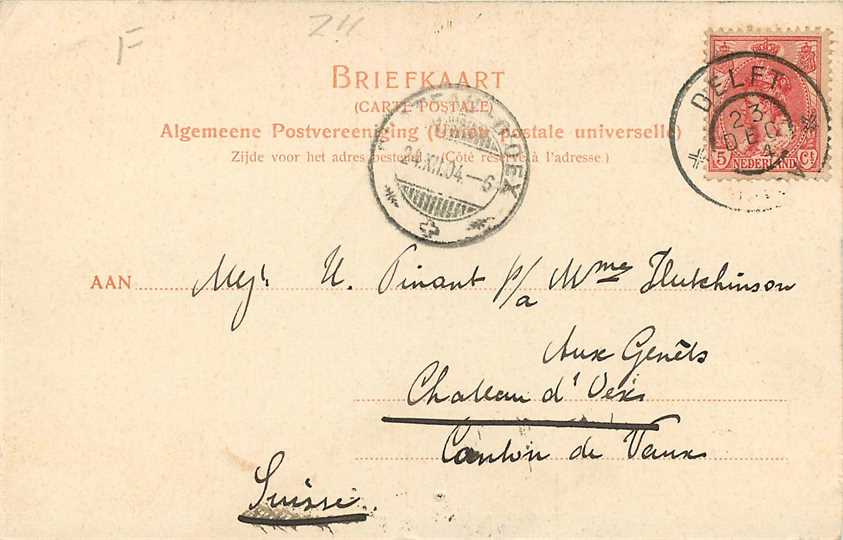 F
BRIEFKAART
(CARTE POSTALE)
Algemeene Postvereeniging (Union postale universelle)
Zijde voor het adres bestemd. (Côté réservé à l'adresse.)
CHÂTEAU-D'OEX
24.XII.04.-6
DELFT
23
DEC
5 NEDERLAND Ct
AAN Mejr U. Pinant p/a Mme Hutchinson
Aux Genêts
Chateau d'Oex
Canton de Vaux
Suisse.